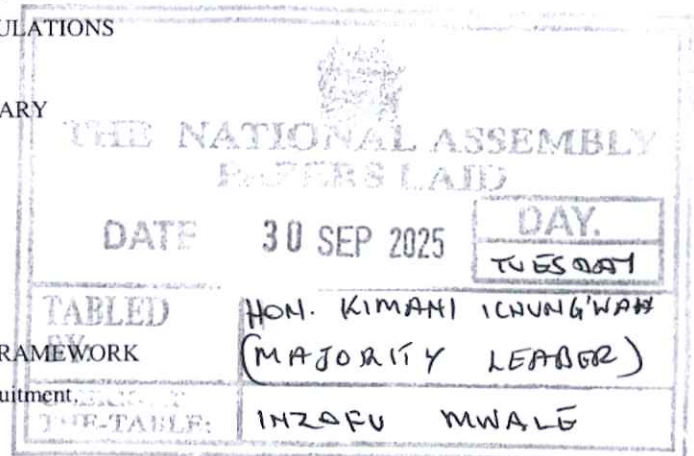 ULATIONS
ARY
THE NATIONAL ASSEMBLY
PAPERS LAID
DATE 30 SEP 2025 DAY.
TUESDAY
TABLED BY: HON. KIMANI ICHUNG'WAH
RAMEWORK (MAJORITY LEADER)
uitment,
THE-TABLE: INZOFU MWALE